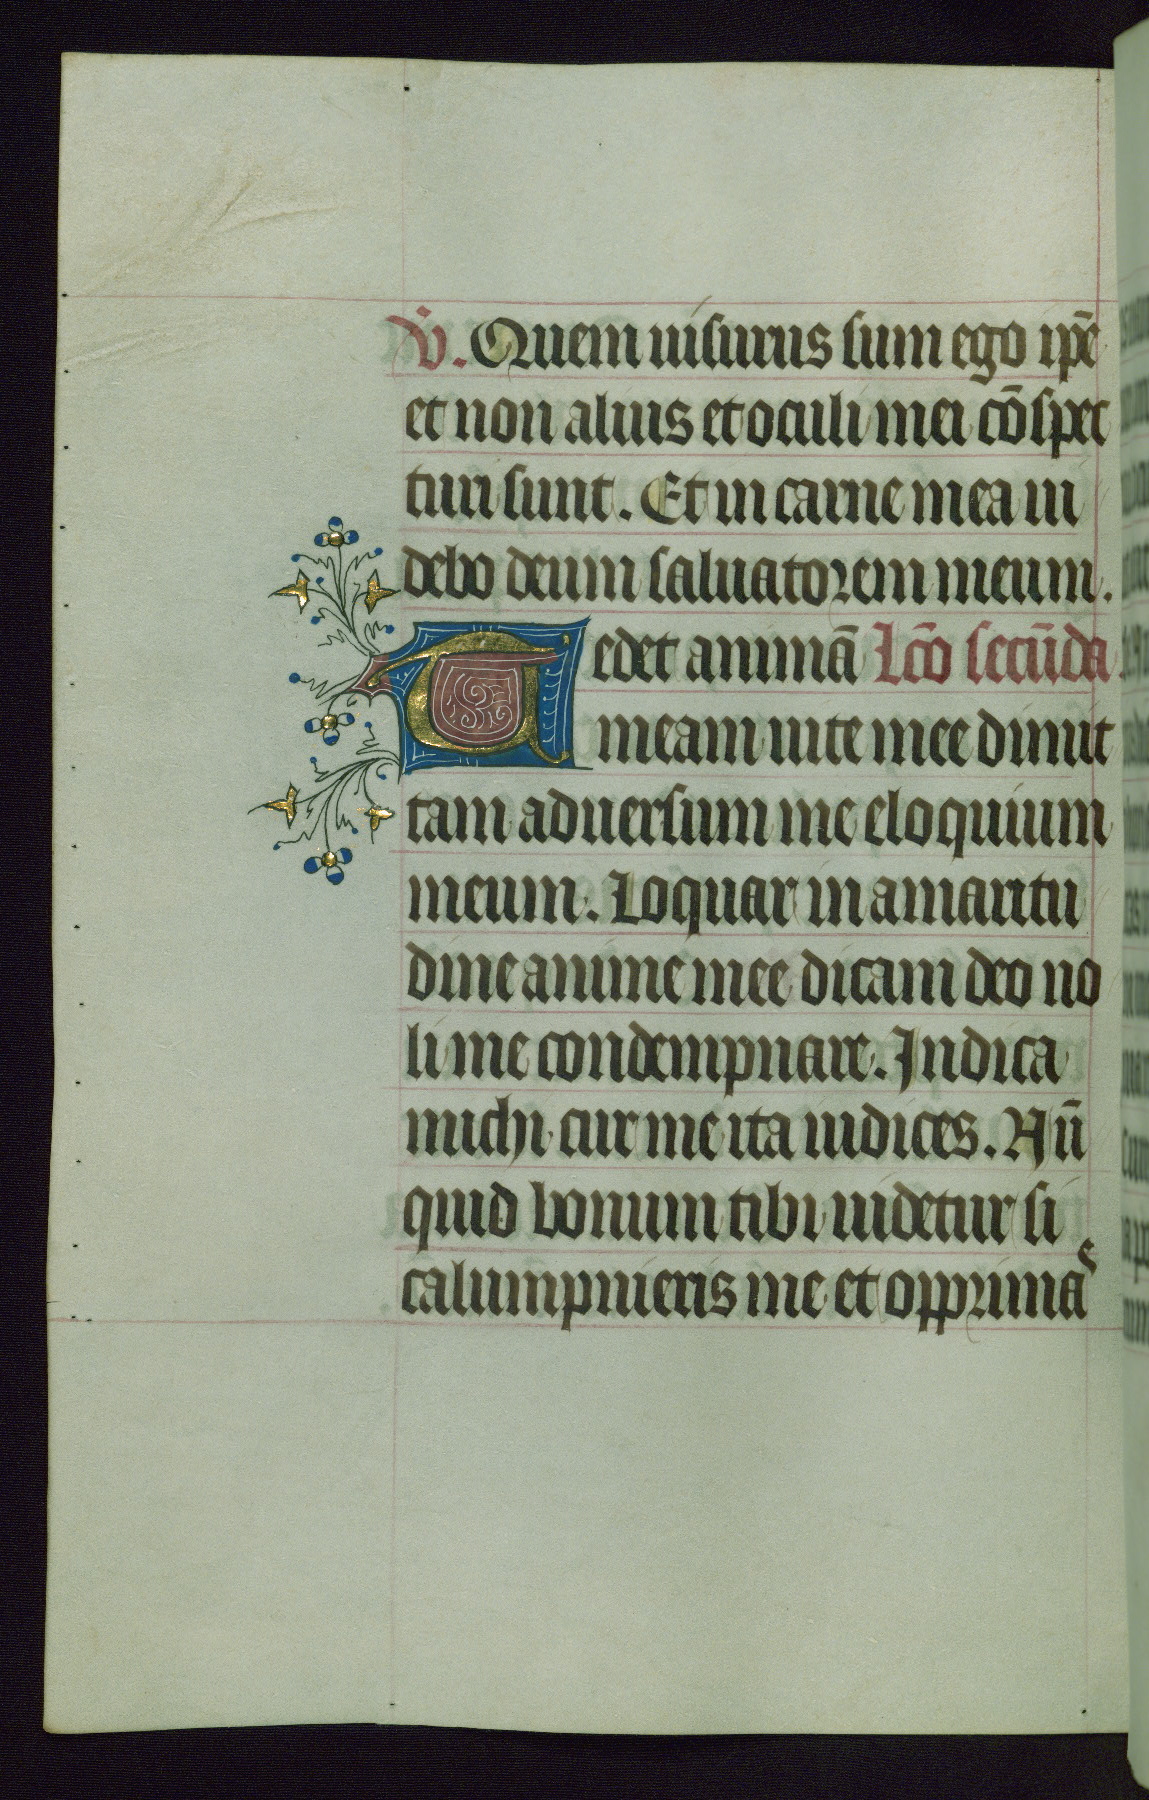 V̄. Quem uisurus sum ego ip̄e
et non alius et oculi mei cōspec
turi sunt. Et in carne mea ui
debo deum saluatorem meum.
Tedet animā Lc̄o secūda.
meam uite mee dimit
tam aduersum me eloquium
meum. Loquar in amaritu
dine anime mee dicam deo no
li me condempnare. Indica
michi cur me ita iudices. Nū
quid bonum tibi uidetur si
calumpnieris me et opprimas